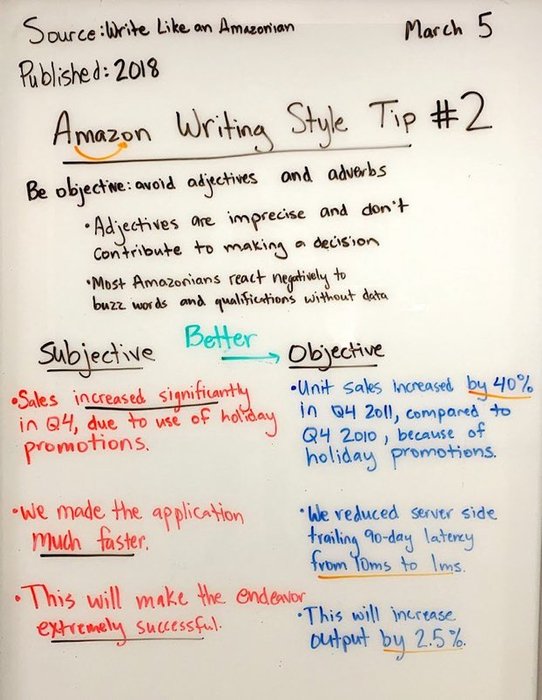 Source: Write Like an Amazonian
March 5
Published: 2018
Amazon Writing Style Tip #2
Be objective: avoid adjectives and adverbs
•Adjectives are imprecise and don't
contribute to making a decision
•Most Amazonians react negatively to
buzz words and qualifications without data
Better
Subjective
•Sales increased significantly
in Q4, due to use of holiday
promotions.
•We made the application
much faster.
•This will make the endeavor
extremely successful.
Objective
•Unit sales increased by 40%
in Q4 2011, compared to
Q4 2010, because of
holiday promotions.
•We reduced server side
trailing 90-day latency
from 10ms to 1ms.
•This will increase
output by 2.5%.